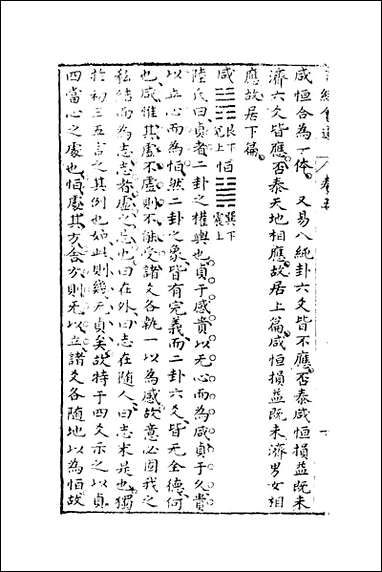 咸恒合為一体 又易八純卦六爻皆不應否泰咸恒損益既未
濟六爻皆應否泰天地相應故居上篇咸恒損益既未濟男女相
應故居下篇
咸 ䷞ 艮下兌上 恒 ䷟ 巽下震上
陸氏曰貞者二卦之權輿也貞于感貴以无心而為咸貞于久貴
以立心而為恒然二卦之象皆有完義而二卦六爻皆无全德何
也咸惟其虛不虛則不能受諸爻各執一以為感故意必固我之
私結而為志志者虛之忘也曰在外曰志在随人曰志末是也獨
於初三五言之其例也如此則幾无貞矣故特于四爻示之以貞
四當心之處也恒處其方舍方則无以立諸爻各随地以為恒故